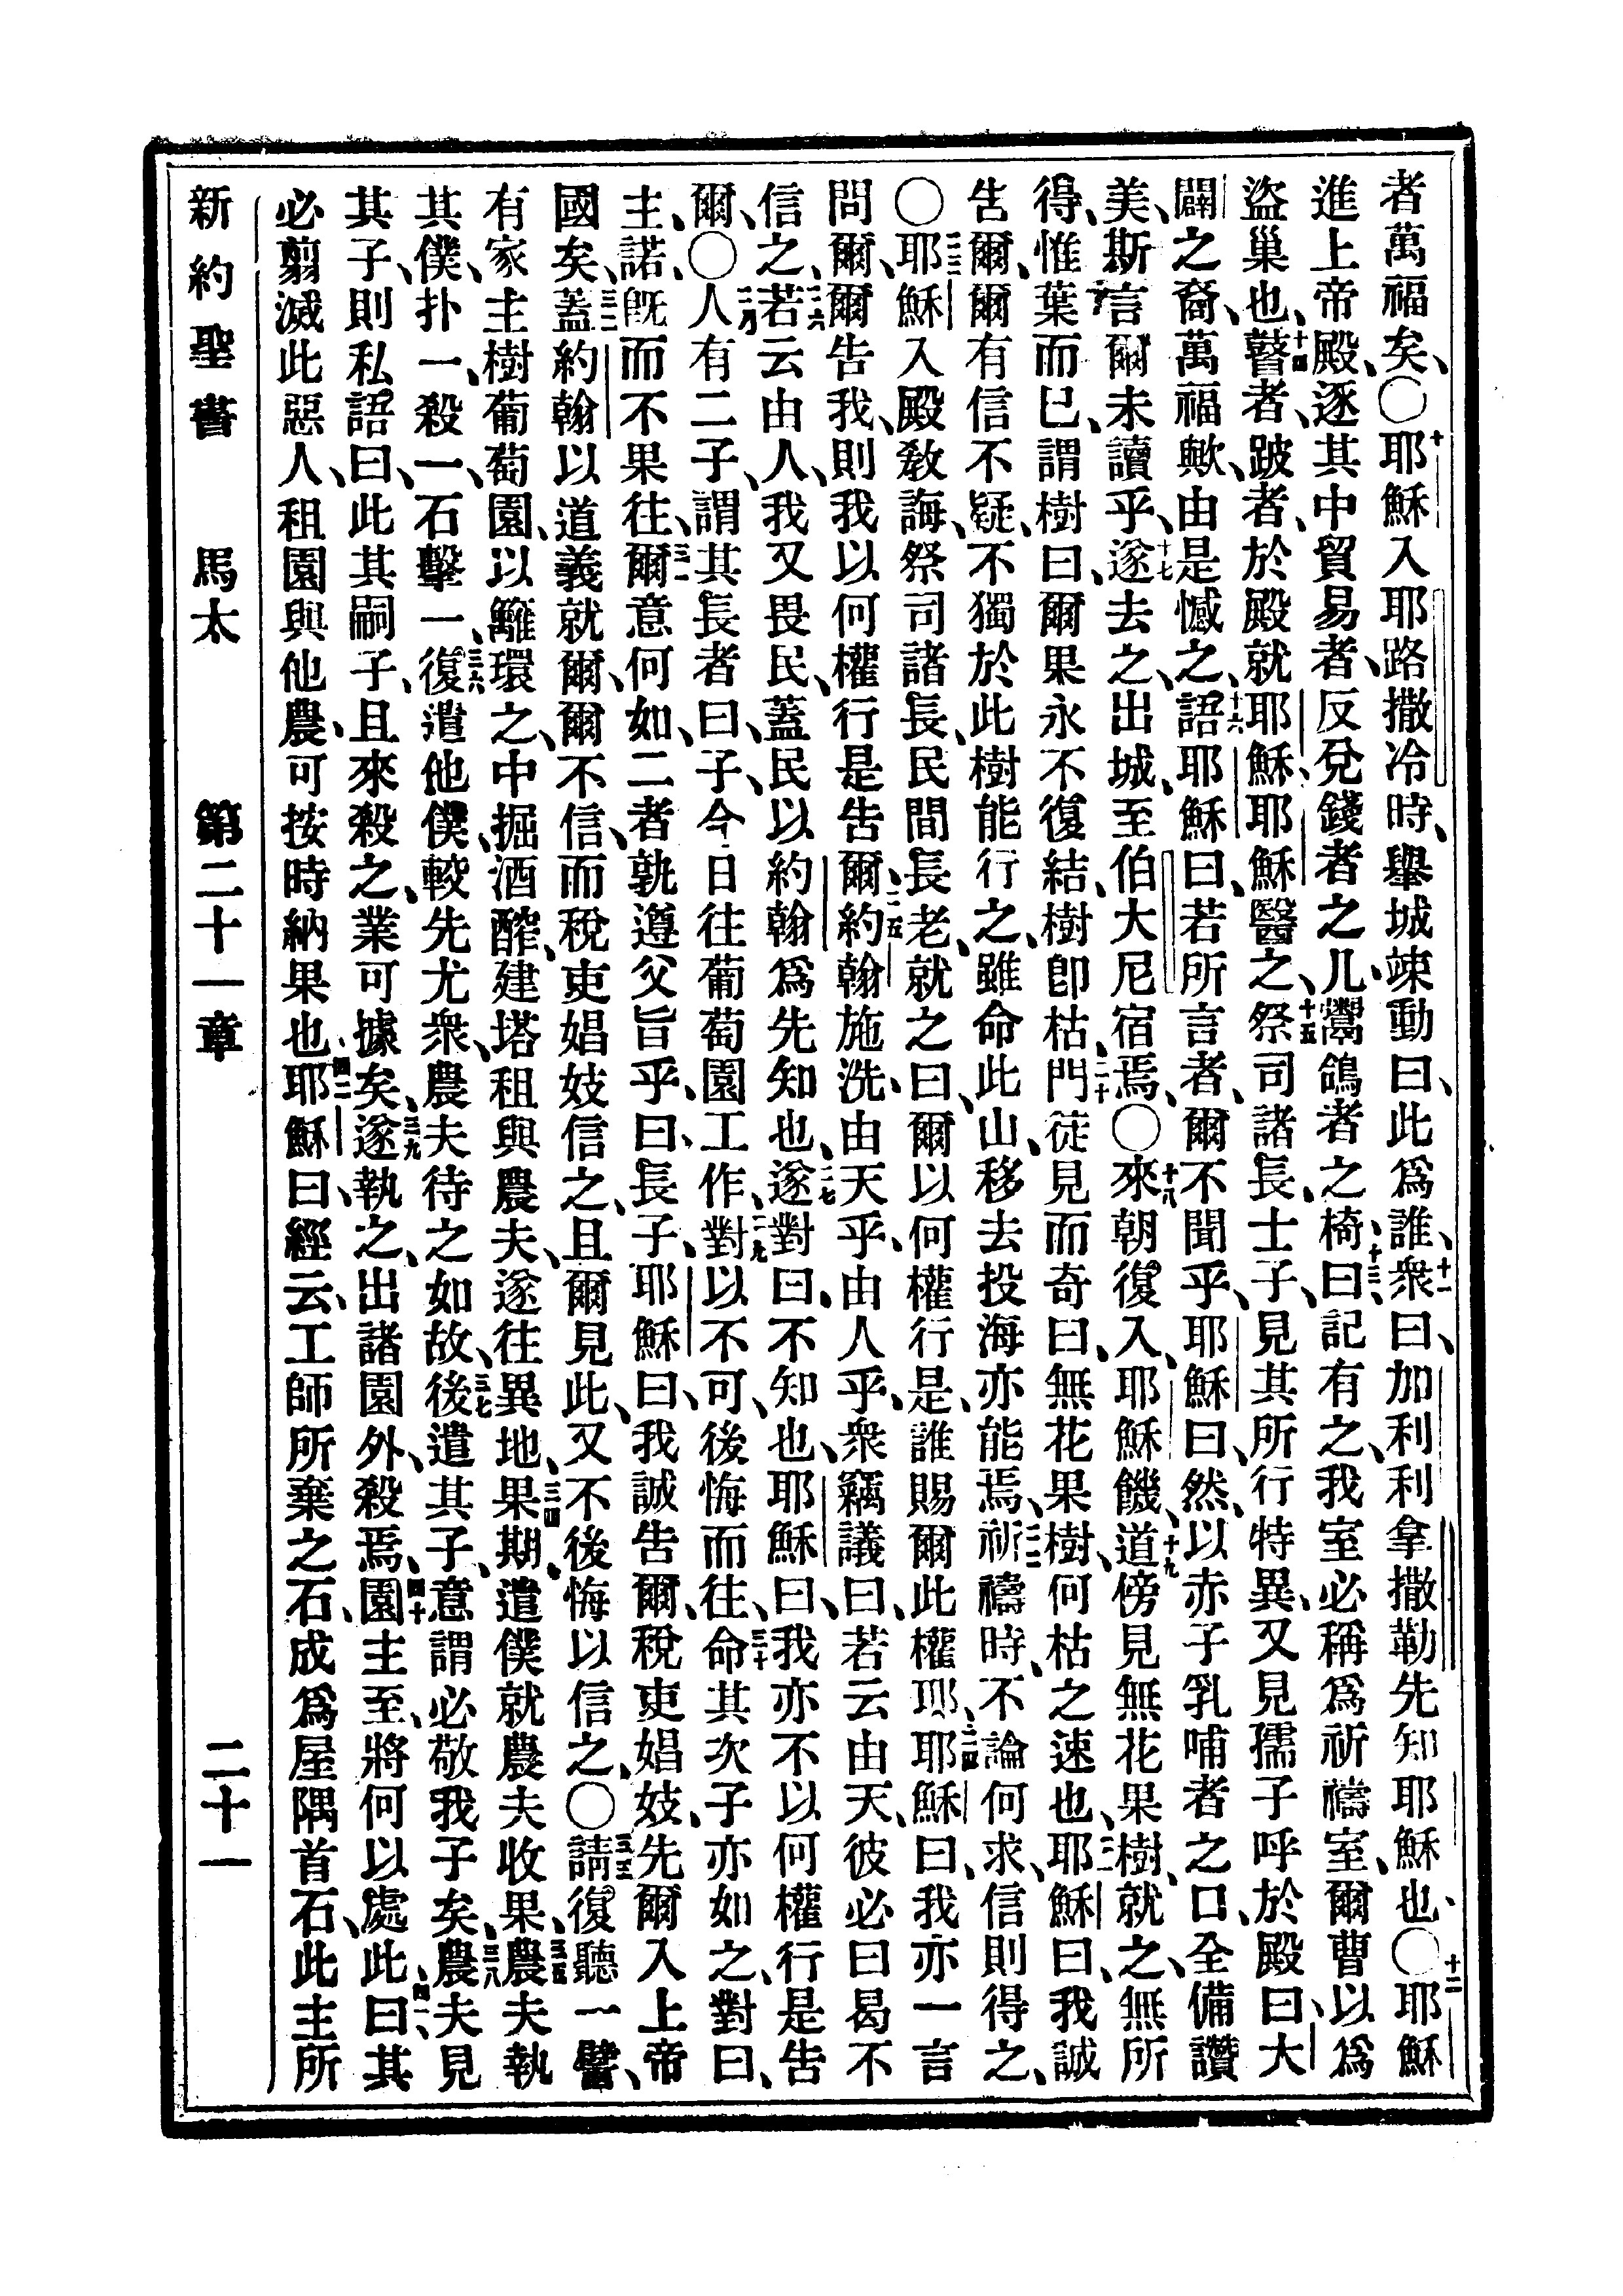 者萬福矣、〇十耶穌入耶路撒冷時、舉城竦動曰、此爲誰、十一衆曰、加利利拿撒勒先知耶穌也、〇十二耶穌
進上帝殿、逐其中貿易者、反兌錢者之几、鬻鴿者之椅、十三曰記有之、我室必稱爲祈禱室、爾曹以爲
盜巢也、十四瞽者、跛者、於殿就耶穌、耶穌醫之、十五祭司諸長、士子、見其所行特異、又見孺子呼於殿曰、大
闢之裔、萬福歟、由是憾之、十六語耶穌曰、若所言者、爾不聞乎、耶穌曰、然、以赤子乳哺者之口、全備讚
美、斯言爾未讀乎、十七遂去之、出城、至伯大尼宿焉、〇十八來朝復入、耶穌饑、十九道傍見無花果樹、就之、無所
得、惟葉而已、謂樹曰、爾果永不復結、樹卽枯、二十門徒見而奇曰、無花果樹、何枯之速也、二一耶穌曰、我誠
告爾、爾有信不疑、不獨於此樹能行之、雖命此山、移去投海亦能焉、二二祈禱時、不論何求、信則得之、
〇二三耶穌入殿敎誨、祭司諸長、民間長老、就之曰、爾以何權行是、誰賜爾此權耶、二四耶穌曰、我亦一言
問爾、爾告我、則我以何權行是告爾、二五約翰施洗、由天乎、由人乎、衆竊議曰、若云由天、彼必曰曷不
信之、二六若云由人、我又畏民、蓋民以約翰爲先知也、二七遂對曰、不知也、耶穌曰、我亦不以何權行是告
爾、〇二八人有二子、謂其長者曰、子、今日往葡萄園工作、二九對以不可、後悔而往、三十命其次子亦如之、對曰、
主、諾、旣而不果往、三一爾意何如、二者孰遵父旨乎、曰、長子、耶穌曰、我誠告爾、稅吏娼妓、先爾入上帝
國矣、三二蓋約翰以道義就爾、爾不信、而稅吏娼妓信之、且爾見此、又不後悔以信之、〇三三請復聽一譬、
有家主樹葡萄園、以籬環之、中掘酒醡、建塔租與農夫、遂往異地、三四果期、遣僕就農夫收果、三五農夫執
其僕、扑一、殺一、石擊一、三六復遣他僕、較先尤衆、農夫待之如故、三七後遣其子、意謂必敬我子矣、三八農夫見
其子、則私語曰、此其嗣子、且來殺之、業可據矣、三九遂執之、出諸園外、殺焉、四十園主至、將何以處此、四一曰、其
必翦滅此惡人、租園與他農、可按時納果也、四二耶穌曰、經云、工師所棄之石、成爲屋隅首石、此主所
新約聖書　馬太　第二十一章　二十一